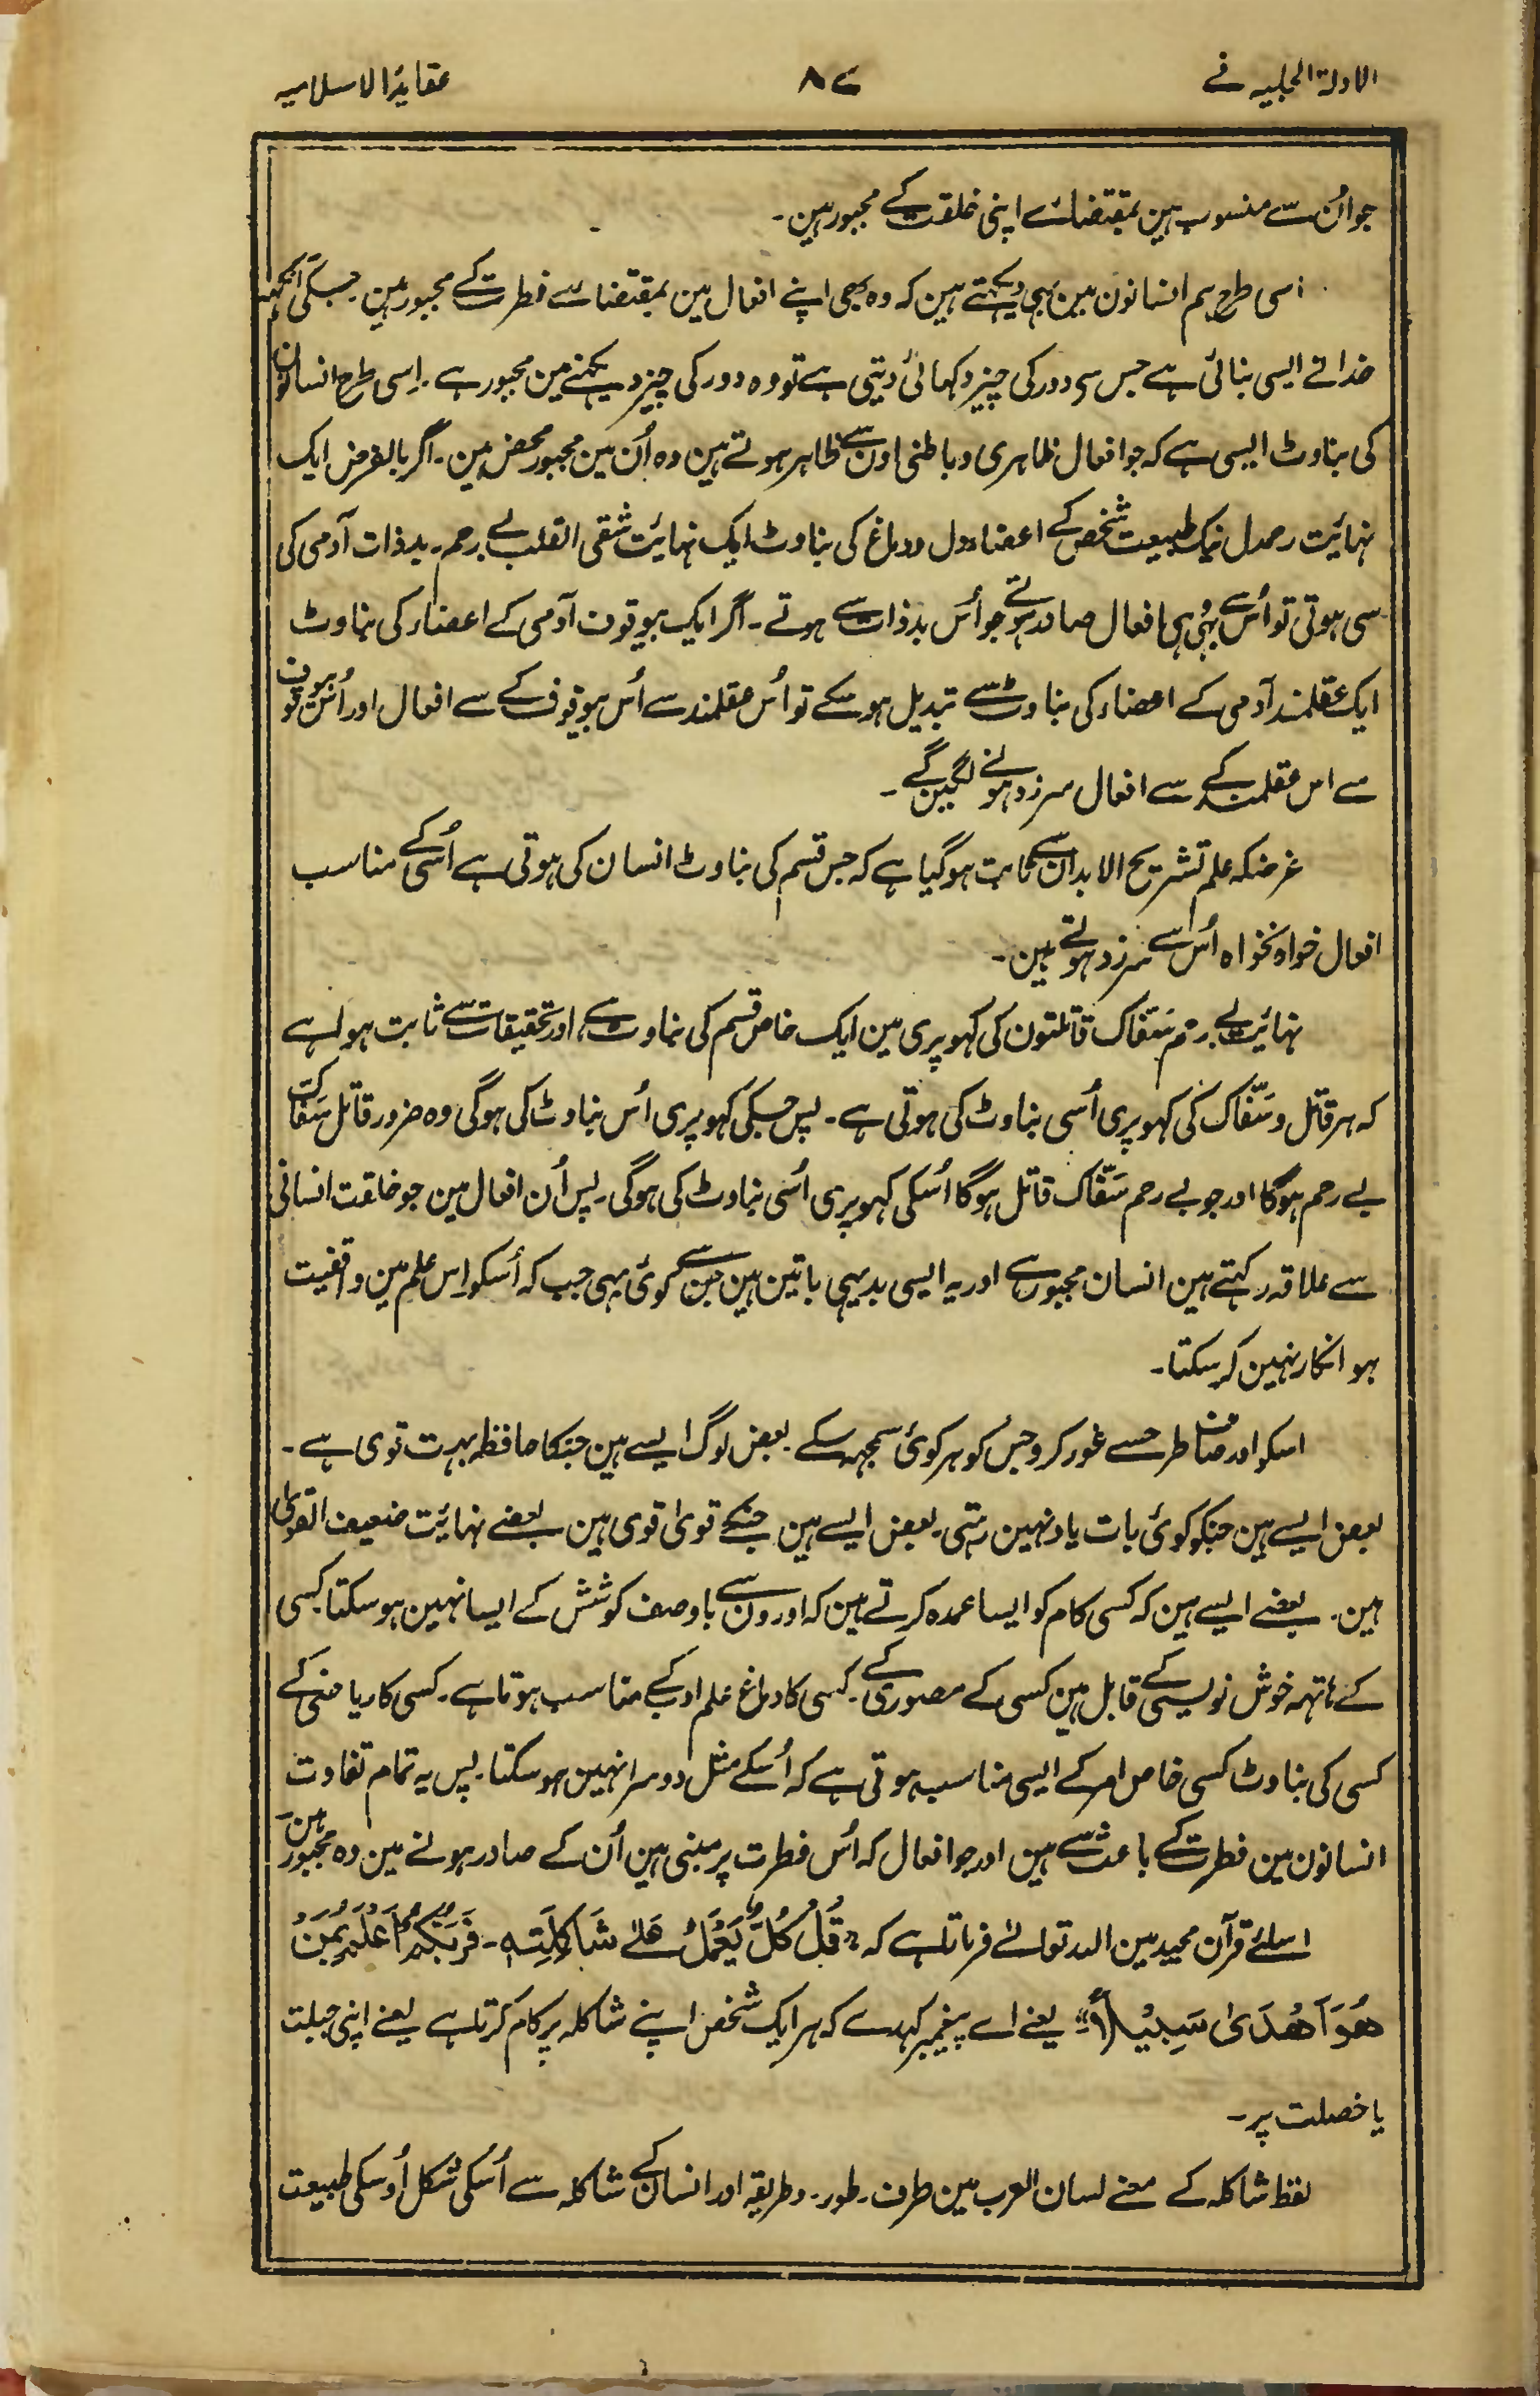 الادلۃ الجلیہ فے
۸۷
عقاید الاسلامیہ
جو اُن سے منسوب ہین بمقتضائے اپنی خلقت کے مجبور ہین۔
اسی طرح ہم انسانون مین بہی دیکہتے ہین کہ وہ بھی اپنے افعال مین بمقتضائے فطرت کے مجبور ہین۔ جسکی آنکہہ
خدا نے ایسی بنائی ہے جس سے دور کی چیز دکہائی دیتی ہے تو وہ دور کی چیز دیکہنے مین مجبور ہے۔ اِسی طرح انسانون
کی بناوٹ ایسی ہے کہ جو افعال ظاہری و باطنی اون سے ظاہر ہوتے ہین وہ اُن مین مجبور محض ہین۔ اگر بالفرض ایک
نہائیت رحمدل نیک طبیعت شخص کے اعضا و دل و دماغ کی بناوٹ ایک نہائیت شقی القلب بے رحم۔ بدذات آدمی کی
سی ہوتی تو اُس سے بہی وہی افعال صادر ہوتے جو اُس بدذات سے ہوتے۔ اگر ایک بیوقوف آدمی کے اعضاء کی بناوٹ
ایک عقلمند آدمی کے اعضاء کی بناوٹ سے تبدیل ہو سکے تو اُس عقلمند سے اُس بیوقوف کے سے افعال اور اُس بیوقوف
سے اس عقلمند کے سے افعال سرزد ہونے لگین گے۔
غرضکہ علم تشریح الابدان سے ثابت ہو گیا ہے کہ جس قسم کی بناوٹ انسان کی ہوتی ہے اُسی کے مناسب
افعال خواہ نخواہ اُس سے سرزد ہوتے ہین۔
نہائیت بے رحم سَفّاک قاتلون کی کہوپری مین ایک خاص قسم کی بناوٹ ہے، اور تحقیقات سے ثابت ہوا ہے
کہ ہر قاتل و سَفّاک کی کہوپری اُسی بناوٹ کی ہوتی ہے۔ پس جسکی کہوپری اُس بناوٹ کی ہوگی وہ ضرور قاتل سَفّاک
بے رحم ہوگا اور جو بے رحم سَفّاک قاتل ہوگا اُسکی کہوپری اُسی بناوٹ کی ہوگی۔ پس اُن افعال مین جو خلقت انسانی
سے علاقہ رکہتے ہین انسان مجبور ہے اور یہ ایسی بدیہی باتین ہین جن سے کوئی بہی جب کہ اُسکو اِس علم مین واقفیت
ہو انکار نہین کر سکتا۔
اسکو اور صاف طرح سے غور کرو جس کو ہر کوئی سمجہہ سکے۔ بعض لوگ ایسے ہین جنکا حافظہ بہت قوی ہے۔
بعض ایسے ہین جنکو کوئی بات یاد نہین رہتی۔ بعض ایسے ہین جنکے قویٰ قوی ہین بعضے نہائیت ضعیف القویٰ
ہین۔ بعضے ایسے ہین کہ کسی کام کو ایسا عمدہ کرتے ہین کہ اورون سے باوصف کوشش کے ایسا نہین ہو سکتا۔ کسی
کے ہاتہہ خوش نویسی کے قابل ہین کسی کے مصوری کے۔ کسی کا دماغ علم ادب کے مناسب ہوتا ہے۔ کسی کا ریاضی کے
کسی کی بناوٹ کسی خاص امر کے ایسی مناسب ہوتی ہے کہ اُسکے مثل دوسرا نہین ہو سکتا۔ پس یہ تمام تفاوت
انسانون مین فطرت کے باعث سے ہین اور جو افعال کہ اُس فطرت پر مبنی ہین اُن کے صادر ہونے مین وہ مجبور ہین۔
اسلئے قرآن مجید مین اللہ تعالےٰ فرماتا ہے کہ "قُلْ كُلٌّ يَعْمَلُ عَلٰى شَاكِلَتِهٖ۔ فَرَبُّكُمْ اَعْلَمُ بِمَنْ
هُوَ اَهْدٰى سَبِيْلًا" یعنے اے پیغمبر کہدے کہ ہر ایک شخص اپنے شاکلہ پر کام کرتا ہے یعنے اپنی جبلت
یا خصلت پر۔
لفظ شاکلہ کے معنے لسان العرب مین طرف۔ طور۔ و طریقہ اور انسان کے شاکلہ سے اُسکی شکل اُوسکی طبیعت